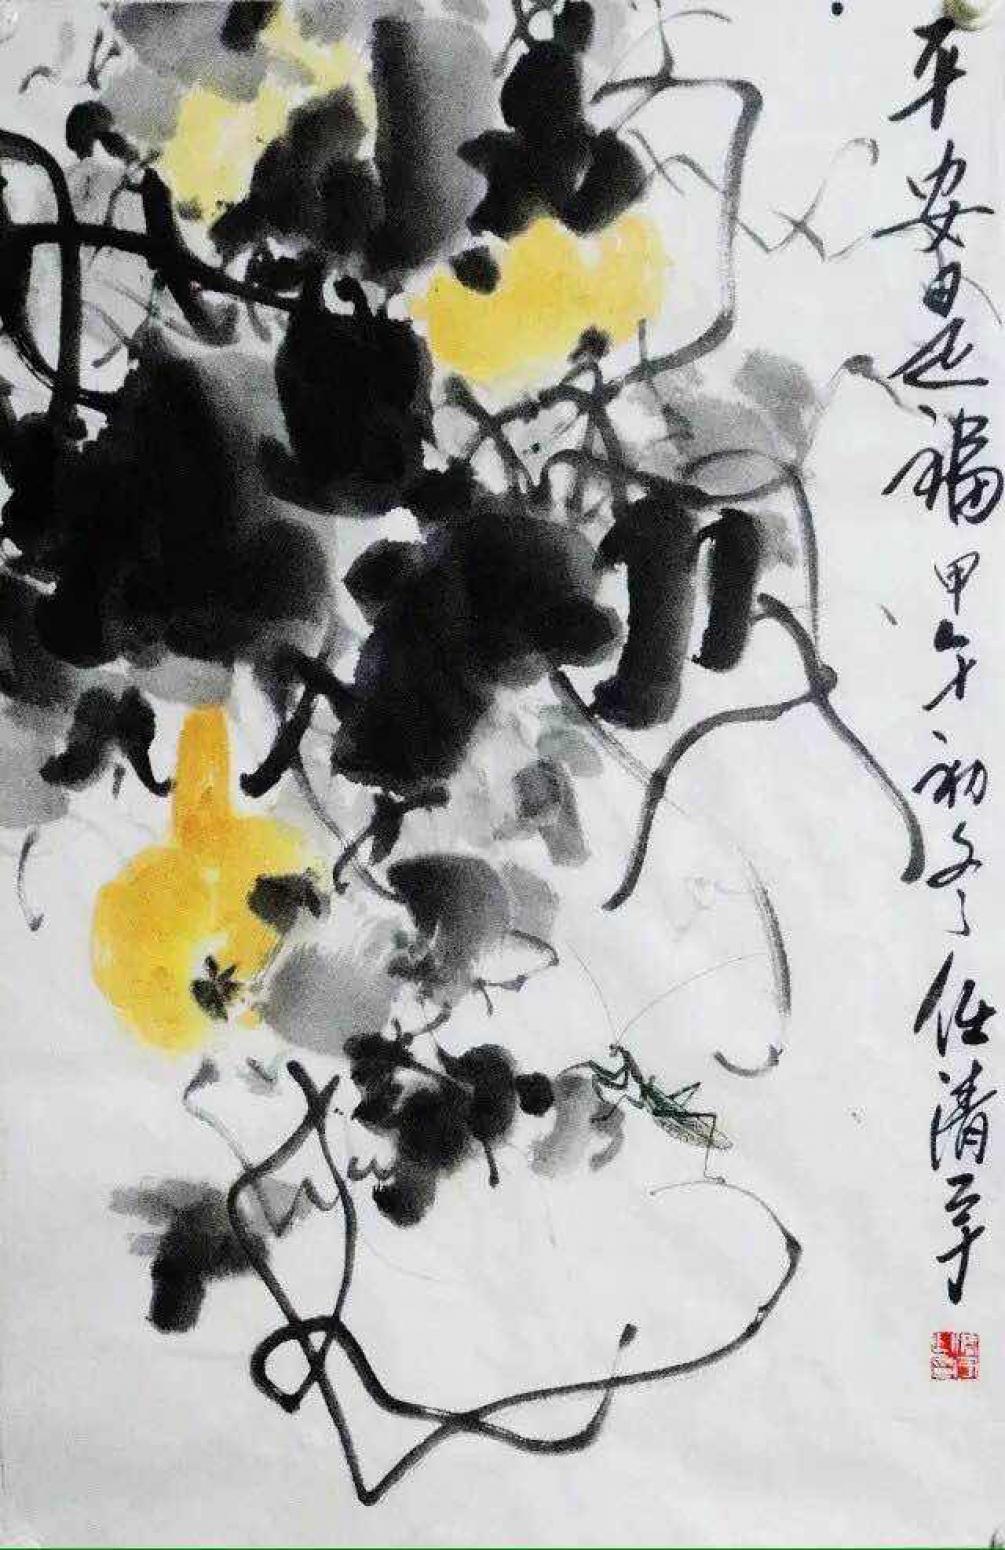 平安是福甲午初冬任清